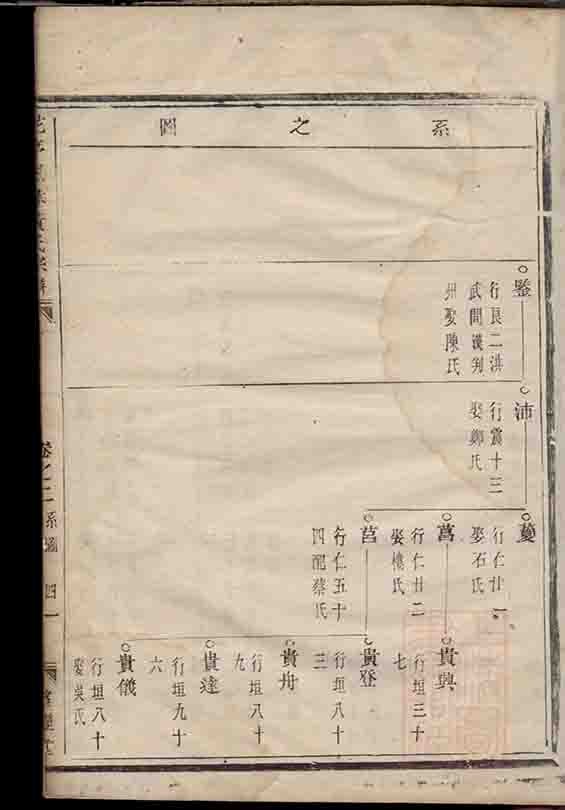 系之圖
鑒
行艮二洪
武間漢判
州娶陳氏
沛
行震十三
娶鄭氏
蔓
行仁廿一
娶石氏
萬
行仁廿二
娶樓氏
莒
行仁五十
四配蔡氏
貴興
行垣三十
七
貴登
行垣八十
三
貴舟
行垣八十
九
貴達
行垣九十
六
貴儀
行垣八十
娶吳氏
卷之二
系圖
四一